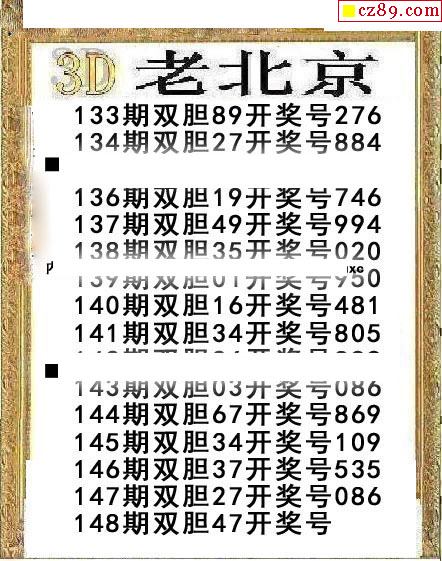 cz89.com
3D 老北京
133期双胆89开奖号276
134期双胆27开奖号884
136期双胆19开奖号746
137期双胆49开奖号994
138期双胆35开奖号020
139期双胆01开奖号950
140期双胆16开奖号481
141期双胆34开奖号805
143期双胆03开奖号086
144期双胆67开奖号869
145期双胆34开奖号109
146期双胆37开奖号535
147期双胆27开奖号086
148期双胆47开奖号